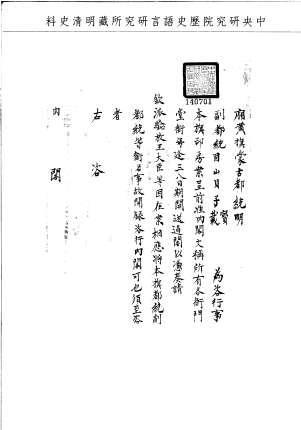 中央研究院歷史語言研究所藏明清史料
140701
廂黃旗蒙古都統明
副都統固山貝子載
賢
為咨行事
本旗印房案呈前准內閣文稱所有各衙門
堂銜每逢三八日期開送過閣以憑奏請
欽派驗放王大臣等因在案相應將本旗都統副
都統等銜名事故開錄咨行內閣可也須至咨
者
右咨
內閣